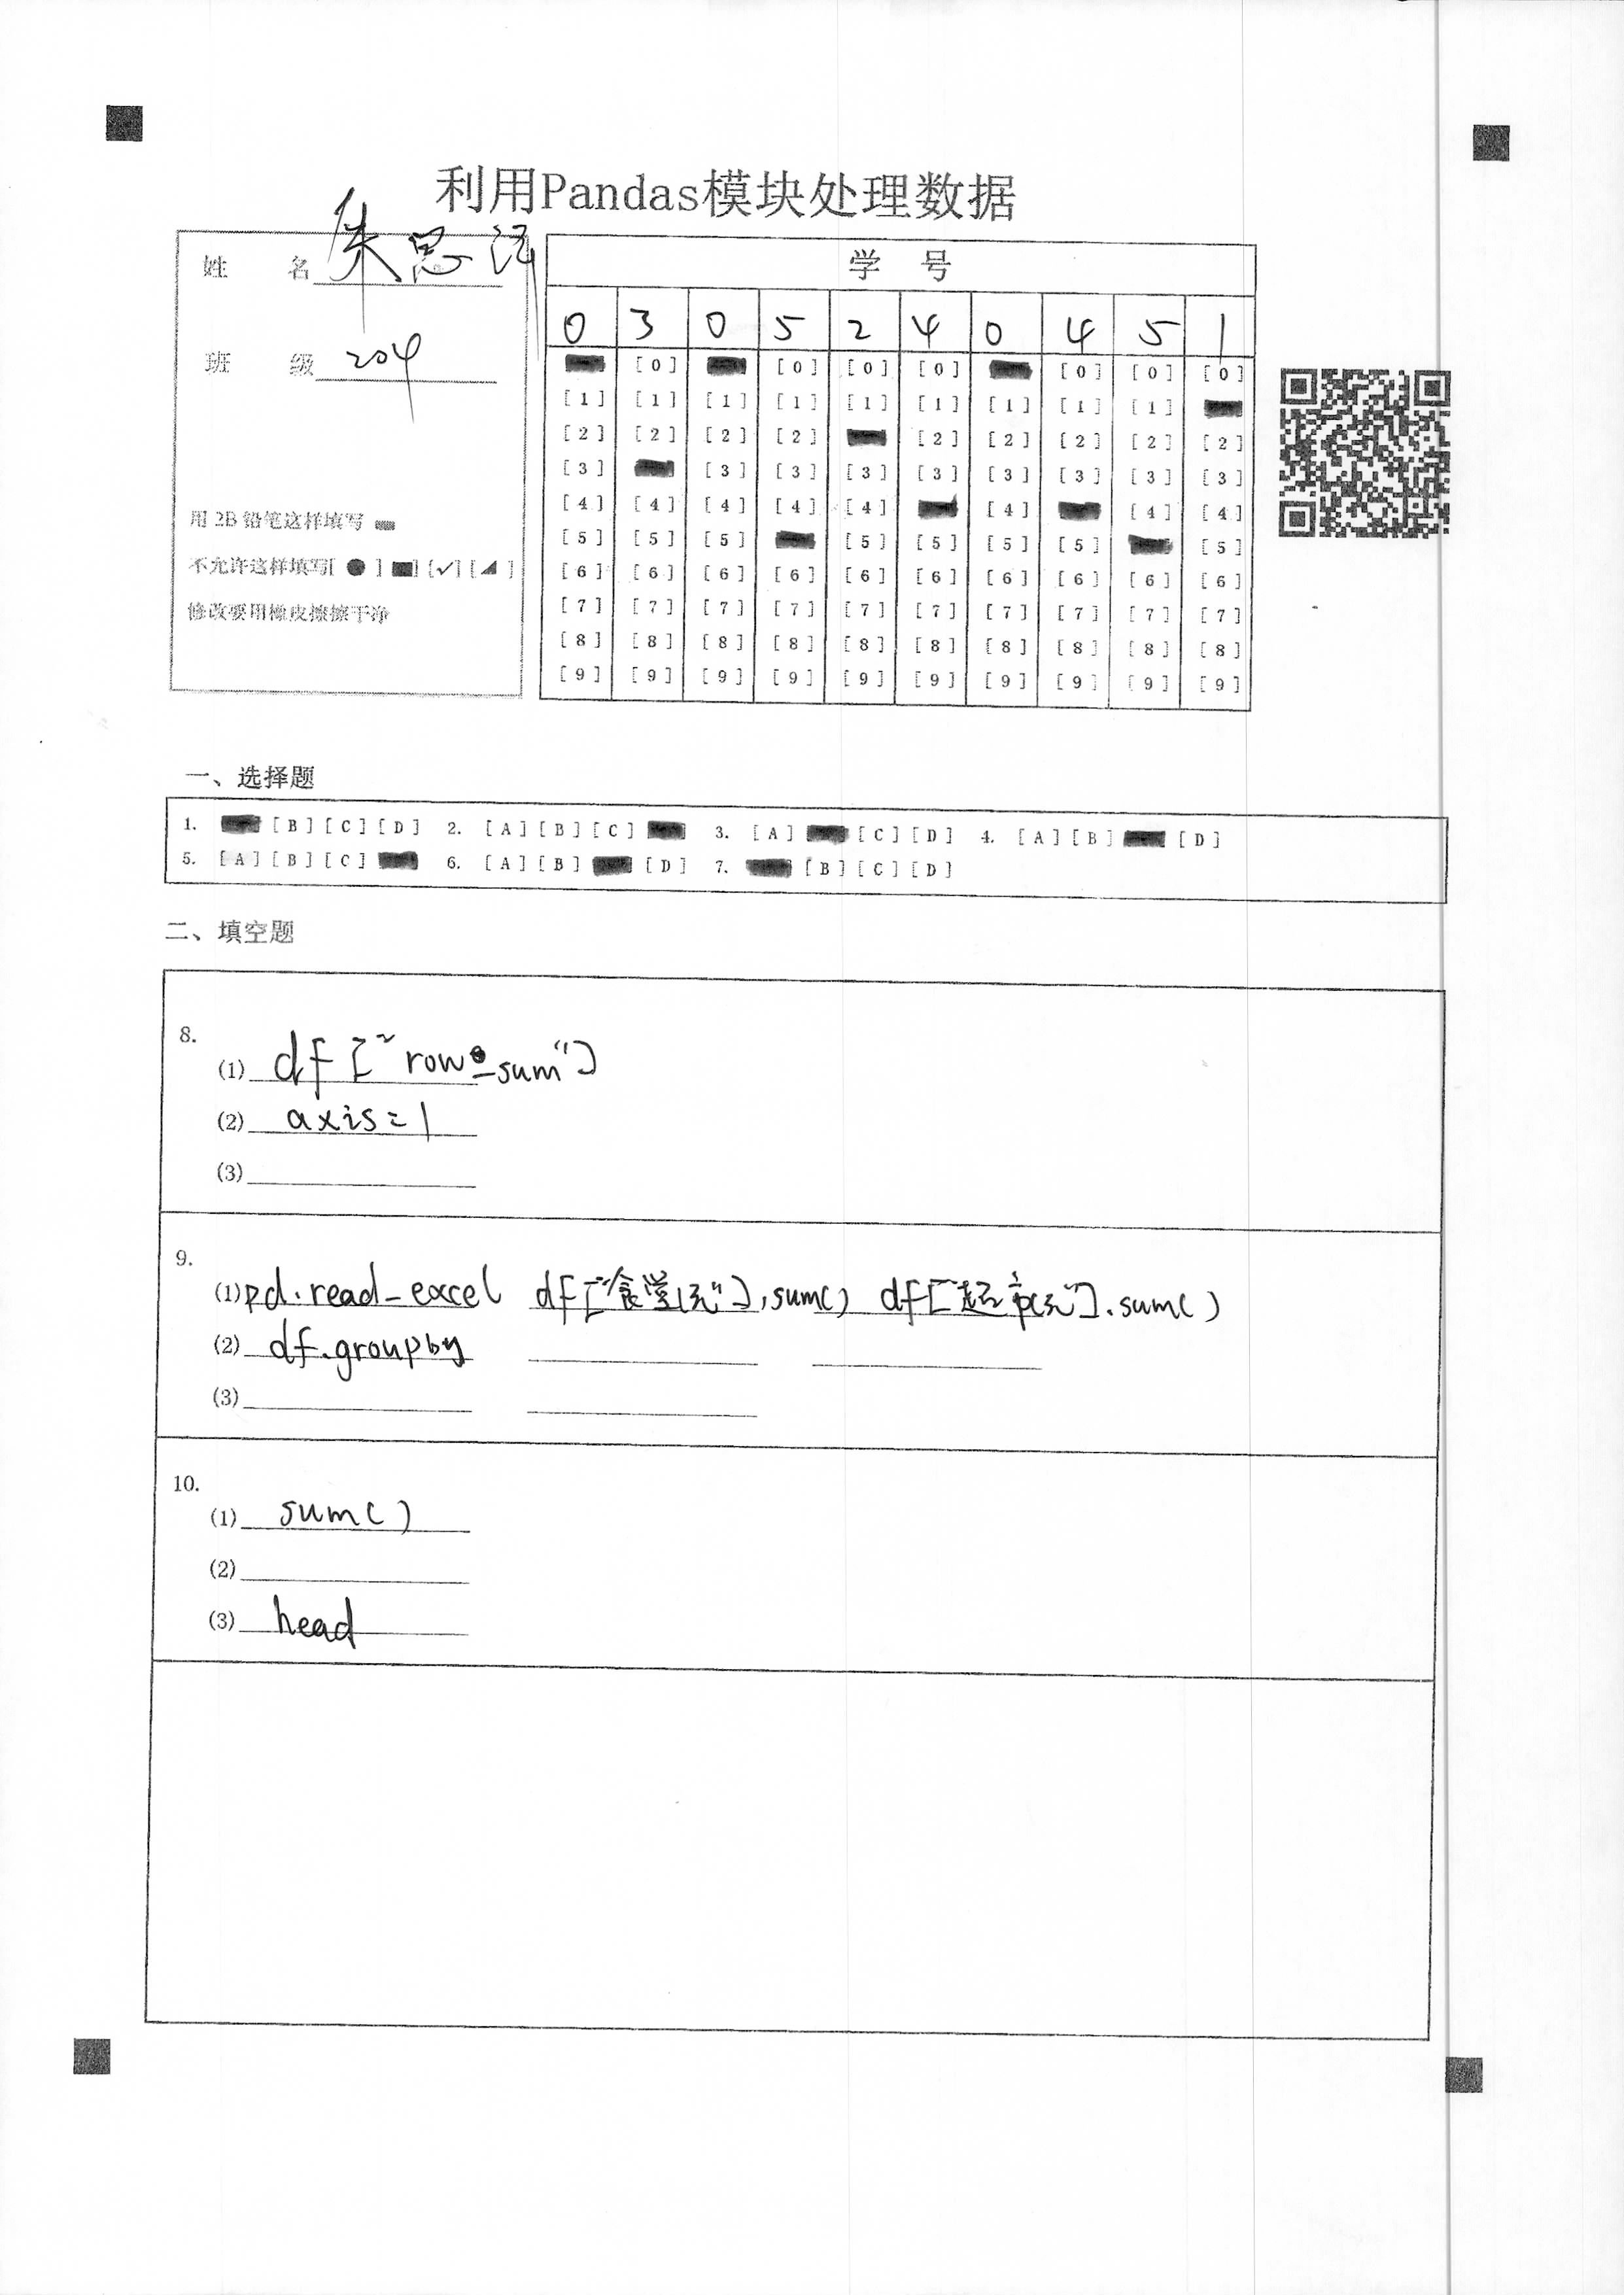 利用Pandas模块处理数据
姓 名 朱思
班 级 204
用 2B 铅笔这样填写
不允许这样填写[ ● ] [■] [✓] [◢ ]
修改要用橡皮擦擦干净
学 号
0 3 0 5 2 4 0 4 5 1
[0] [0] [0] [0] [0] [0] [0]
[1] [1] [1] [1] [1] [1] [1] [1] [1]
[2] [2] [2] [2] [2] [2] [2] [2] [2]
[3] [3] [3] [3] [3] [3] [3] [3] [3]
[4] [4] [4] [4] [4] [4] [4] [4]
[5] [5] [5] [5] [5] [5] [5] [5]
[6] [6] [6] [6] [6] [6] [6] [6] [6] [6]
[7] [7] [7] [7] [7] [7] [7] [7] [7] [7]
[8] [8] [8] [8] [8] [8] [8] [8] [8] [8]
[9] [9] [9] [9] [9] [9] [9] [9] [9] [9]
一、选择题
1. [B] [C] [D] 2. [A] [B] [C] 3. [A] [C] [D] 4. [A] [B] [D]
5. [A] [B] [C] 6. [A] [B] [D] 7. [B] [C] [D]
二、填空题
8.
(1) df["row_sum"]
(2) axis=1
(3)
9.
(1) pd.read_excel df["食堂(元)"].sum() df["超市(元)"].sum()
(2) df.groupby
(3)
10.
(1) sum()
(2)
(3) head